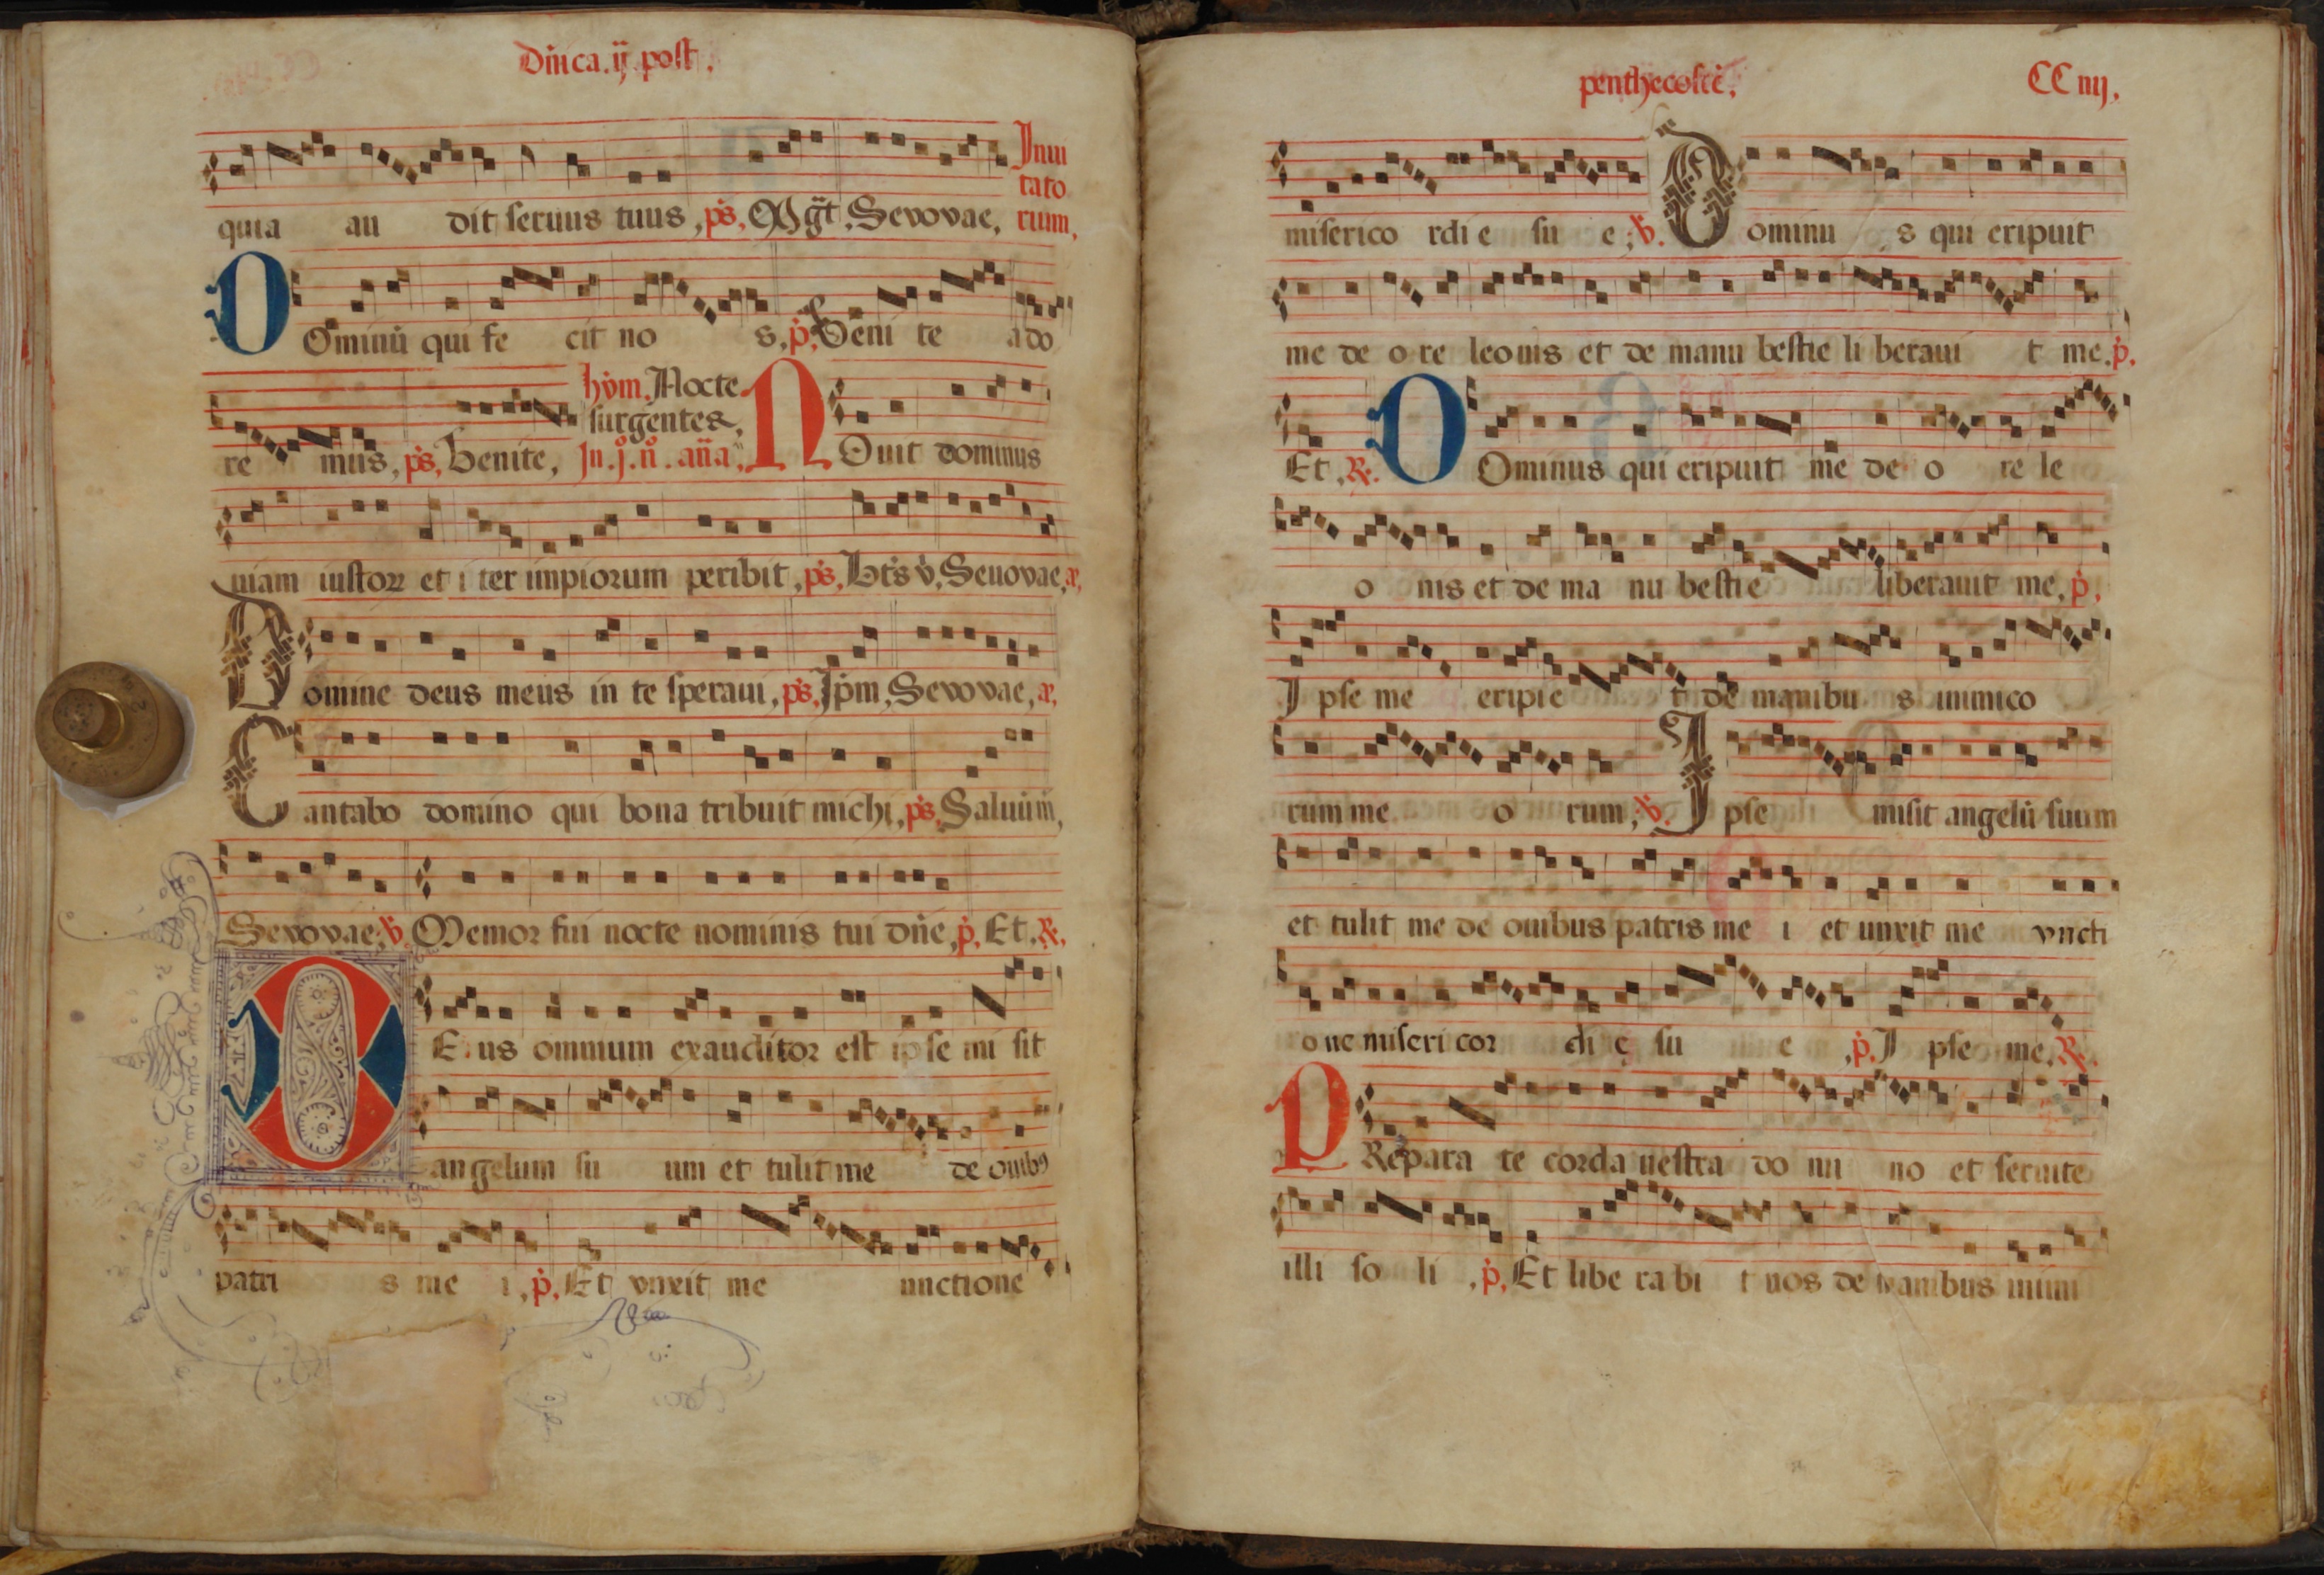 Dn̄ica. ij. post.
quia au dit seruus tuus, p̄s, Mgt̄. Seuouae, Inui tato rium,
DOminū qui fe cit no s, p̄. Ueni te ado
re mus, p̄s, Uenite, hym̄. Nocte surgentes, In. j. n̊. an̄a, NOuit dominus
uiam iustoꝝ et i ter impiorum peribit, p̄s, Bt̄s v̄, Seuouae, a,
Domine deus meus in te speraui, p̄s, Ip̄m, Seuouae, a,
Cantabo domino qui bona tribuit michi, p̄s, Saluūm,
Seuouae; v̄. Memor fui nocte nominis tui dn̄e, p̄, Et, R̄,
DEus omnium exauditor est ipse mi sit
angelum su um et tulit me de ouibꝯ
patri s me i, p̄, Et vnxit me unctione
penthecostē,
CC iiij,
miserico rdi e su e; v̄. Dominu s qui eripuit
me de o re leonis et de manu bestie li beraui t me. p̄,
Et, R̄. DOminus qui eripuit me de o re le
o nis et de ma nu bestie liberauit me, p̄,
I pse me eripie t de manibu s inimico
rum me o rum; v̄. I pse misit angelū suum
et tulit me de ouibus patris me i et unxit me vncti
one miseri cor di e su e, p̄. I pse me, R̄.
PREpara te corda uestra do mi no et seruite
illi so li, p̄, Et libe ra bi t nos de manibus inimi